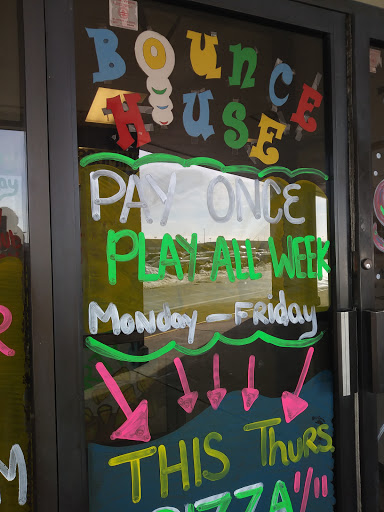 BOUNCE
HOUSE
PAY ONCE
PLAY ALL WEEK
Monday - Friday
THIS Thurs.
PIZZA